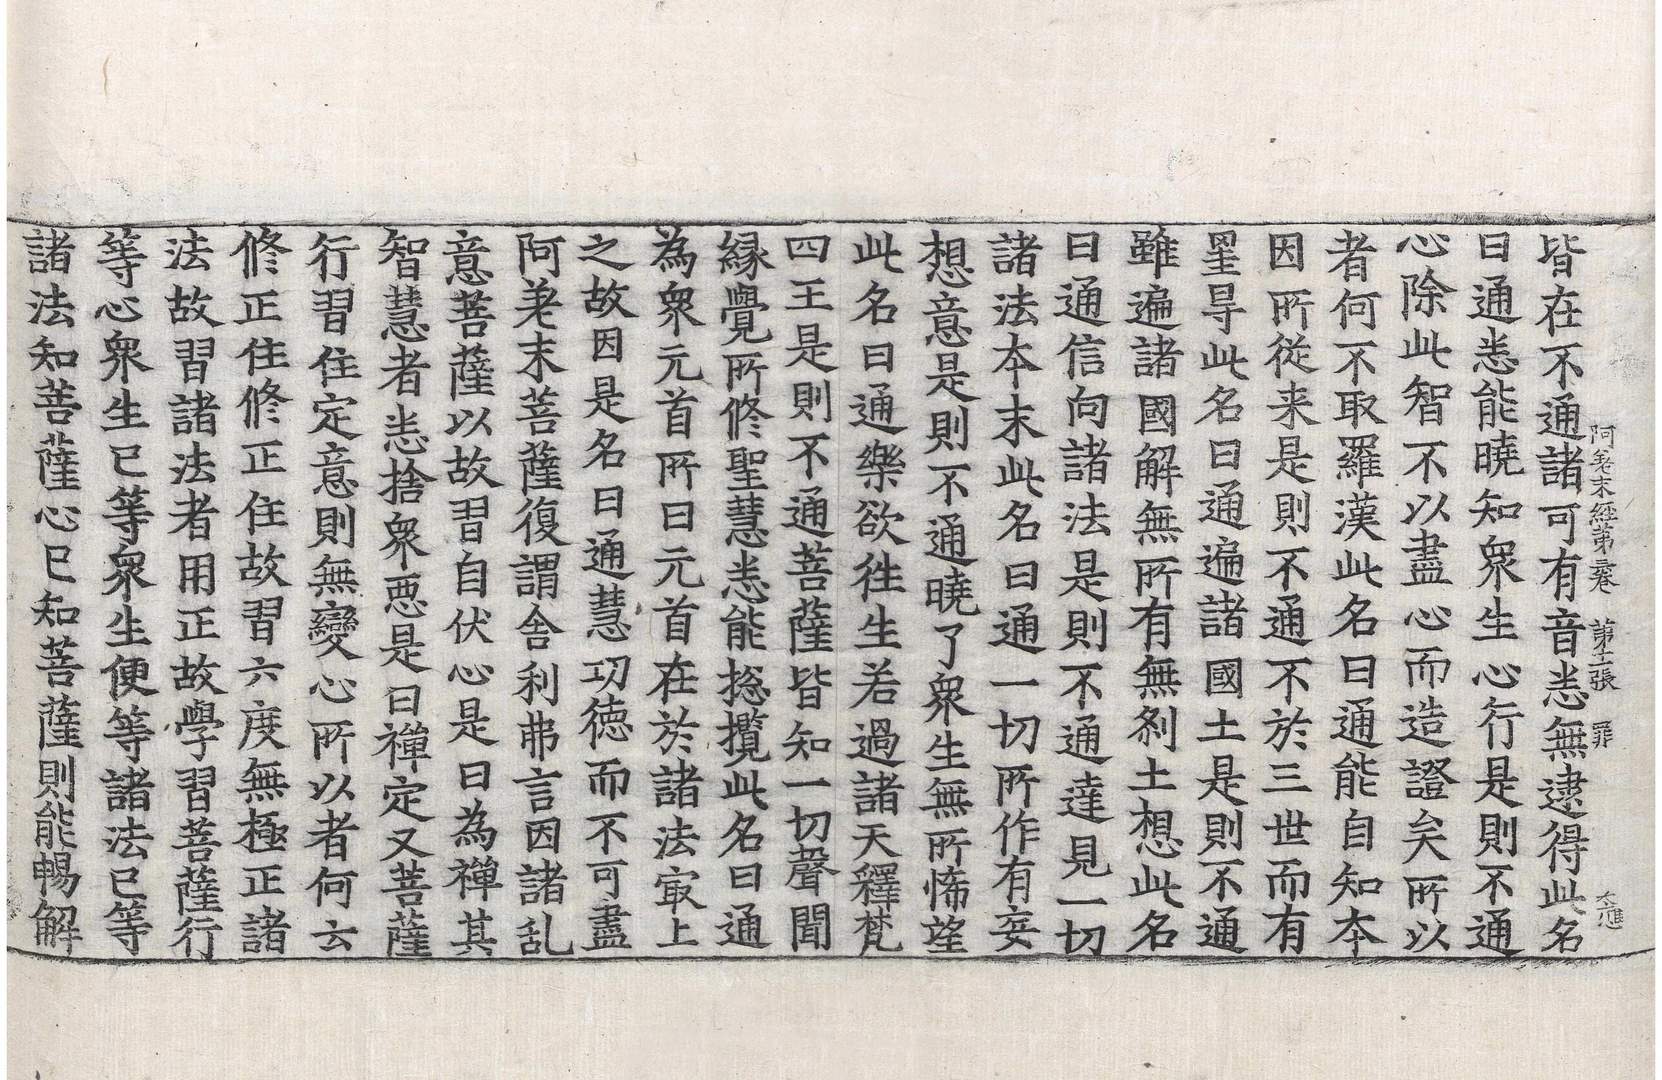 阿差末經第三卷　第十二張　罪　大進
皆在不通諸可有音悉無逮得此名
曰通悉能曉知衆生心行是則不通
心除此智不以盡心而造證矣所以
者何不取羅漢此名曰通能自知本
因所從来是則不通不於三世而有
罣㝵此名曰通遍諸國土是則不通
雖遍諸國解無所有無刹土想此名
曰通信向諸法是則不通達見一切
諸法本末此名曰通一切所作有妄
想意是則不通曉了衆生無所悕望
此名曰通樂欲徃生若過諸天釋梵
四王是則不通菩薩皆知一切聲聞
緣覺所修聖慧悉能捴攬此名曰通
為衆元首所曰元首在於諸法㝡上
之故因是名曰通慧功徳而不可盡
阿差末菩薩復謂舎利弗言因諸乱
意菩薩以故習自伏心是曰為禪其
智慧者悉捨衆惡是曰禪定又菩薩
行習住定意則無變心所以者何云
修正住修正住故習六度無極正諸
法故習諸法者用正故學習菩薩行
等心衆生已等衆生便等諸法已等
諸法知菩薩心已知菩薩則能暢解